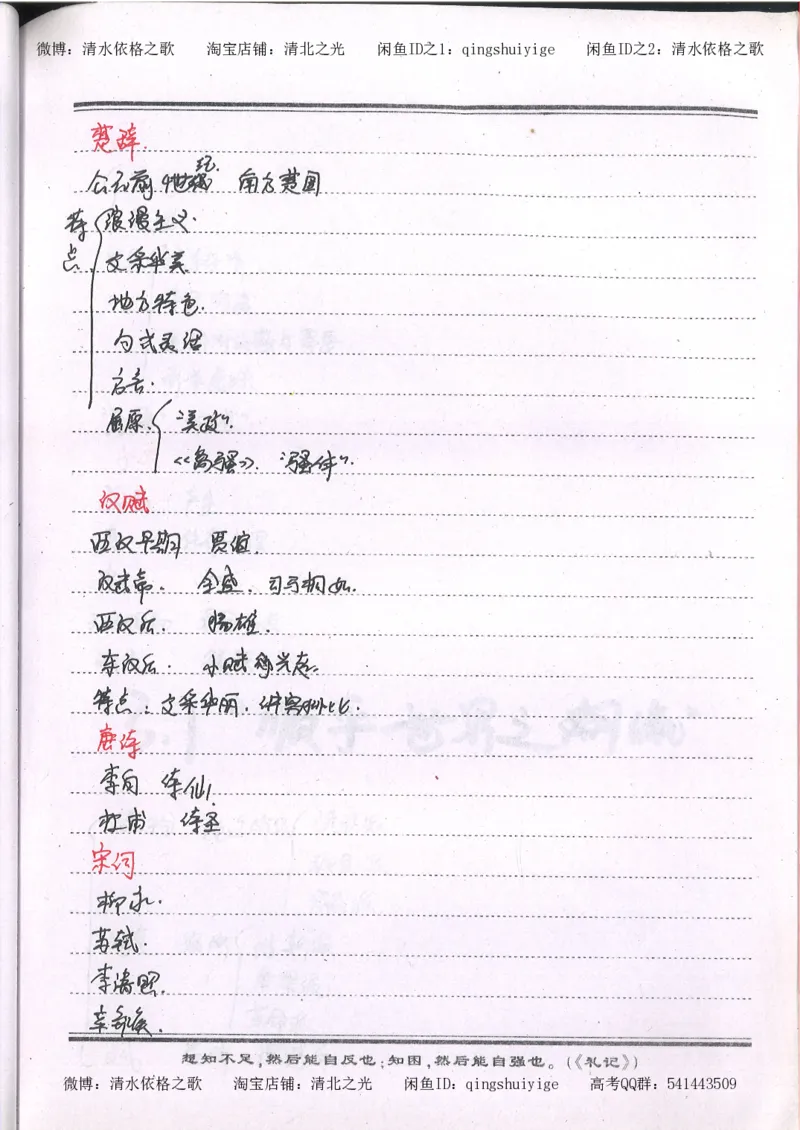 微博：清水依格之歌 淘宝店铺：清北之光 闲鱼ID之1：qingshuiyige 闲鱼ID之2：清水依格之歌
楚辞.
公元前4世纪 南方楚国
特点 浪漫主义.
文采华美
地方特色.
句式灵活
方言.
屈原. "美政".
《离骚》. "骚体".
汉赋
西汉早期 贾谊.
汉武帝. 全盛. 司马相如.
西汉后. 扬雄.
东汉后. 小赋称兴起.
特点：文采华丽. 讲究排比.
唐诗
李白 诗仙.
杜甫 诗圣
宋词
柳永.
苏轼.
李清照.
辛弃疾.
想知不足,然后能自反也;知困,然后能自强也。(《礼记》)
微博：清水依格之歌 淘宝店铺：清北之光 闲鱼ID：qingshuiyige 高考QQ群：541443509